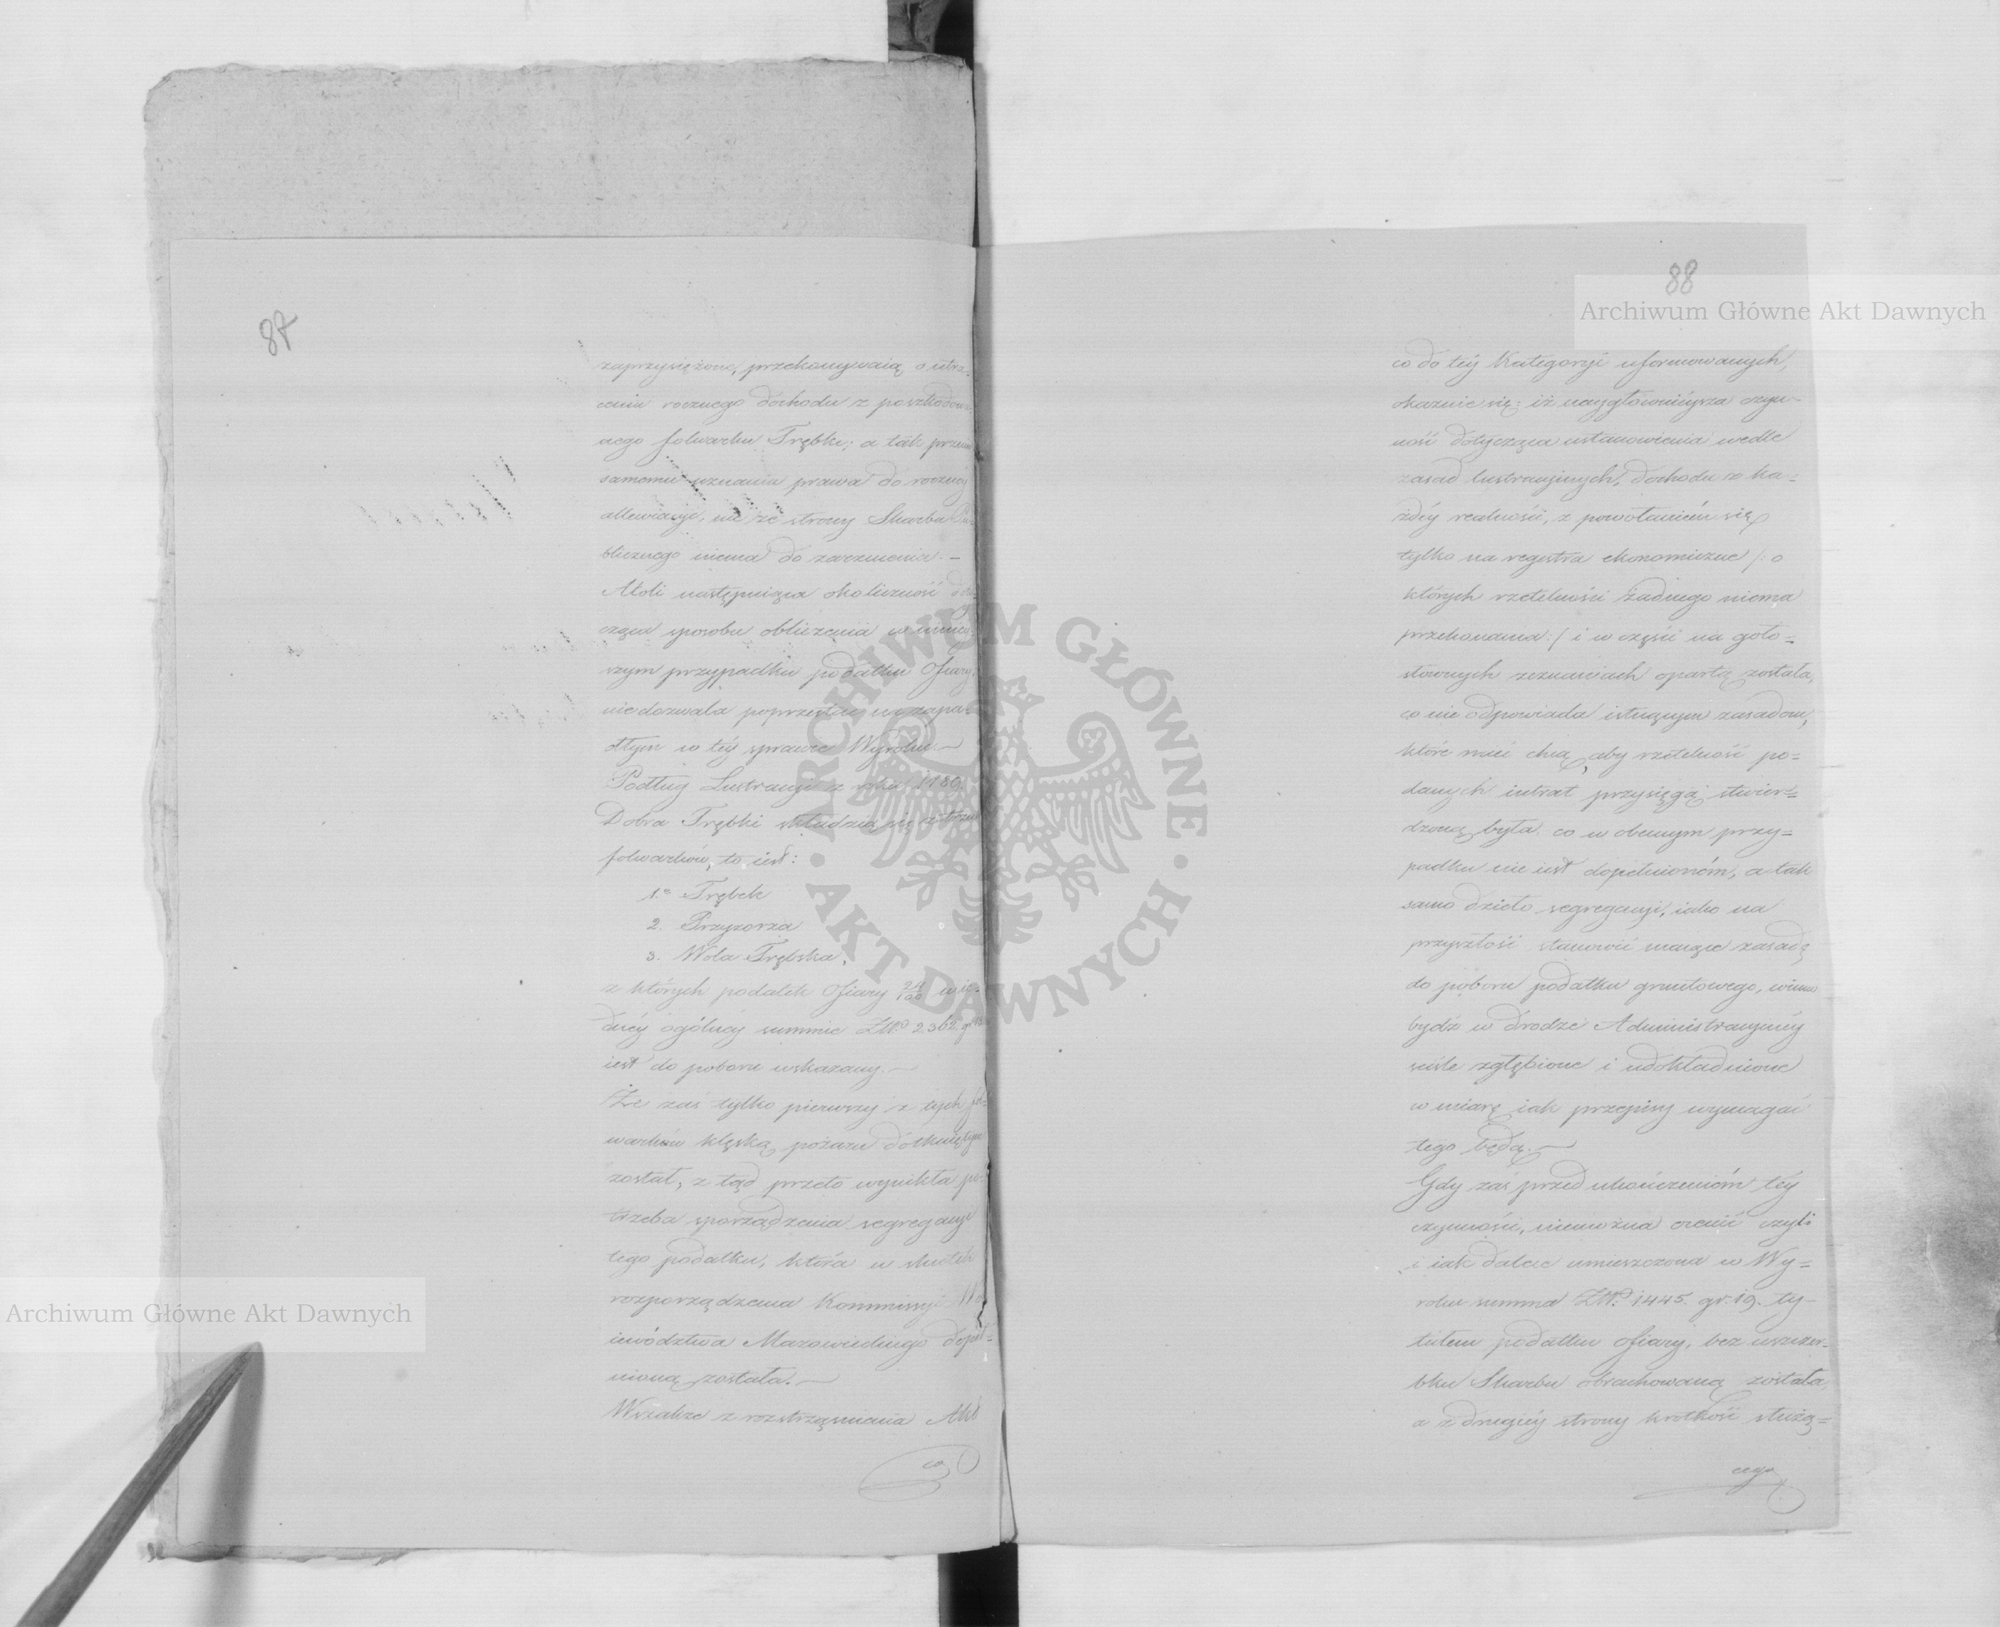 87
zaprzysiężone, przekonywaią o utra-
ceniu rocznego dochodu z poszkodowa-
nego folwarku Trębki; a tak przeciw
samemu uznaniu prawa do roczney
allewiacyi, nic ze strony Skarbu Pu-
blicznego niema do zarzucenia. —
Atoli następuiąca okoliczność doty-
cząca sposobu obliczenia w niniey-
szym przypadku podatku Ofiary,
nie dozwala poprzestać na zapa-
dłym w téy sprawie Wyroku. —
Podług Lustracyi z roku 1789.
Dobra Trębki składaią się z trzech
folwarków, to iest:
1. Trębek
2. Przyzorza
3. Wola Trębska,
z których podatek Ofiary 24/100 w ie-
dnéy ogólnéy summie ZłP. 2362 gr
iest do poboru wskazany. —
Że zaś tylko pierwszy z tych fol-
warków klęską pożaru dotknięty
został, z tąd przeto wynikła po-
trzeba sporządzenia segregacyi
tego podatku, która w skutek
rozporządzenia Kommissyi Wo-
iewództwa Mazowieckiego dopeł-
nioną została. —
Wszakże z rozstrząśnienia Akt
co
88
Archiwum Główne Akt Dawnych
co do téy Kategoryi uformowanych,
okazuie się; iż naygłownieysza czyn-
ność dotycząca ustanowienia wedle
zasad lustracyinych, dochodu z ka-
żdéy realności, z powołaniém się
tylko na regestra ekonomiczne /: o
których rzetelności żadnego niema
przekonania :/ i w części na goło-
słownych zeznaniach opartą została,
co nie odpowiada istnącym zasadom,
które mieć chcą, aby rzetelność po-
danych intrat przysięgą stwier-
dzoną była. co w obecnym przy-
padku nie iest dopełnioném, a tak
samo dzieło segregacyi, iako na
przyszłość stanowić maiące zasadę
do poboru podatku gruntowego, winno
bydź w drodze Administracyinéy
ściśle zgłębione i udokładnione
w miarę iak przepisy wymagać
tego będą. —
Gdy zaś przed ukończeniém téy
czynności, niemożna ocenić czyli
i iak dalece umieszczona w Wy-
roku summa ZłP. 1445. gr. 19. ty-
tułem podatku Ofiary, bez uszczer-
bku Skarbu obrachowaną została,
a z drugiéy strony krotkość służą-
cego
ARCHIWUM GŁÓWNE
AKT DAWNYCH
Archiwum Główne Akt Dawnych